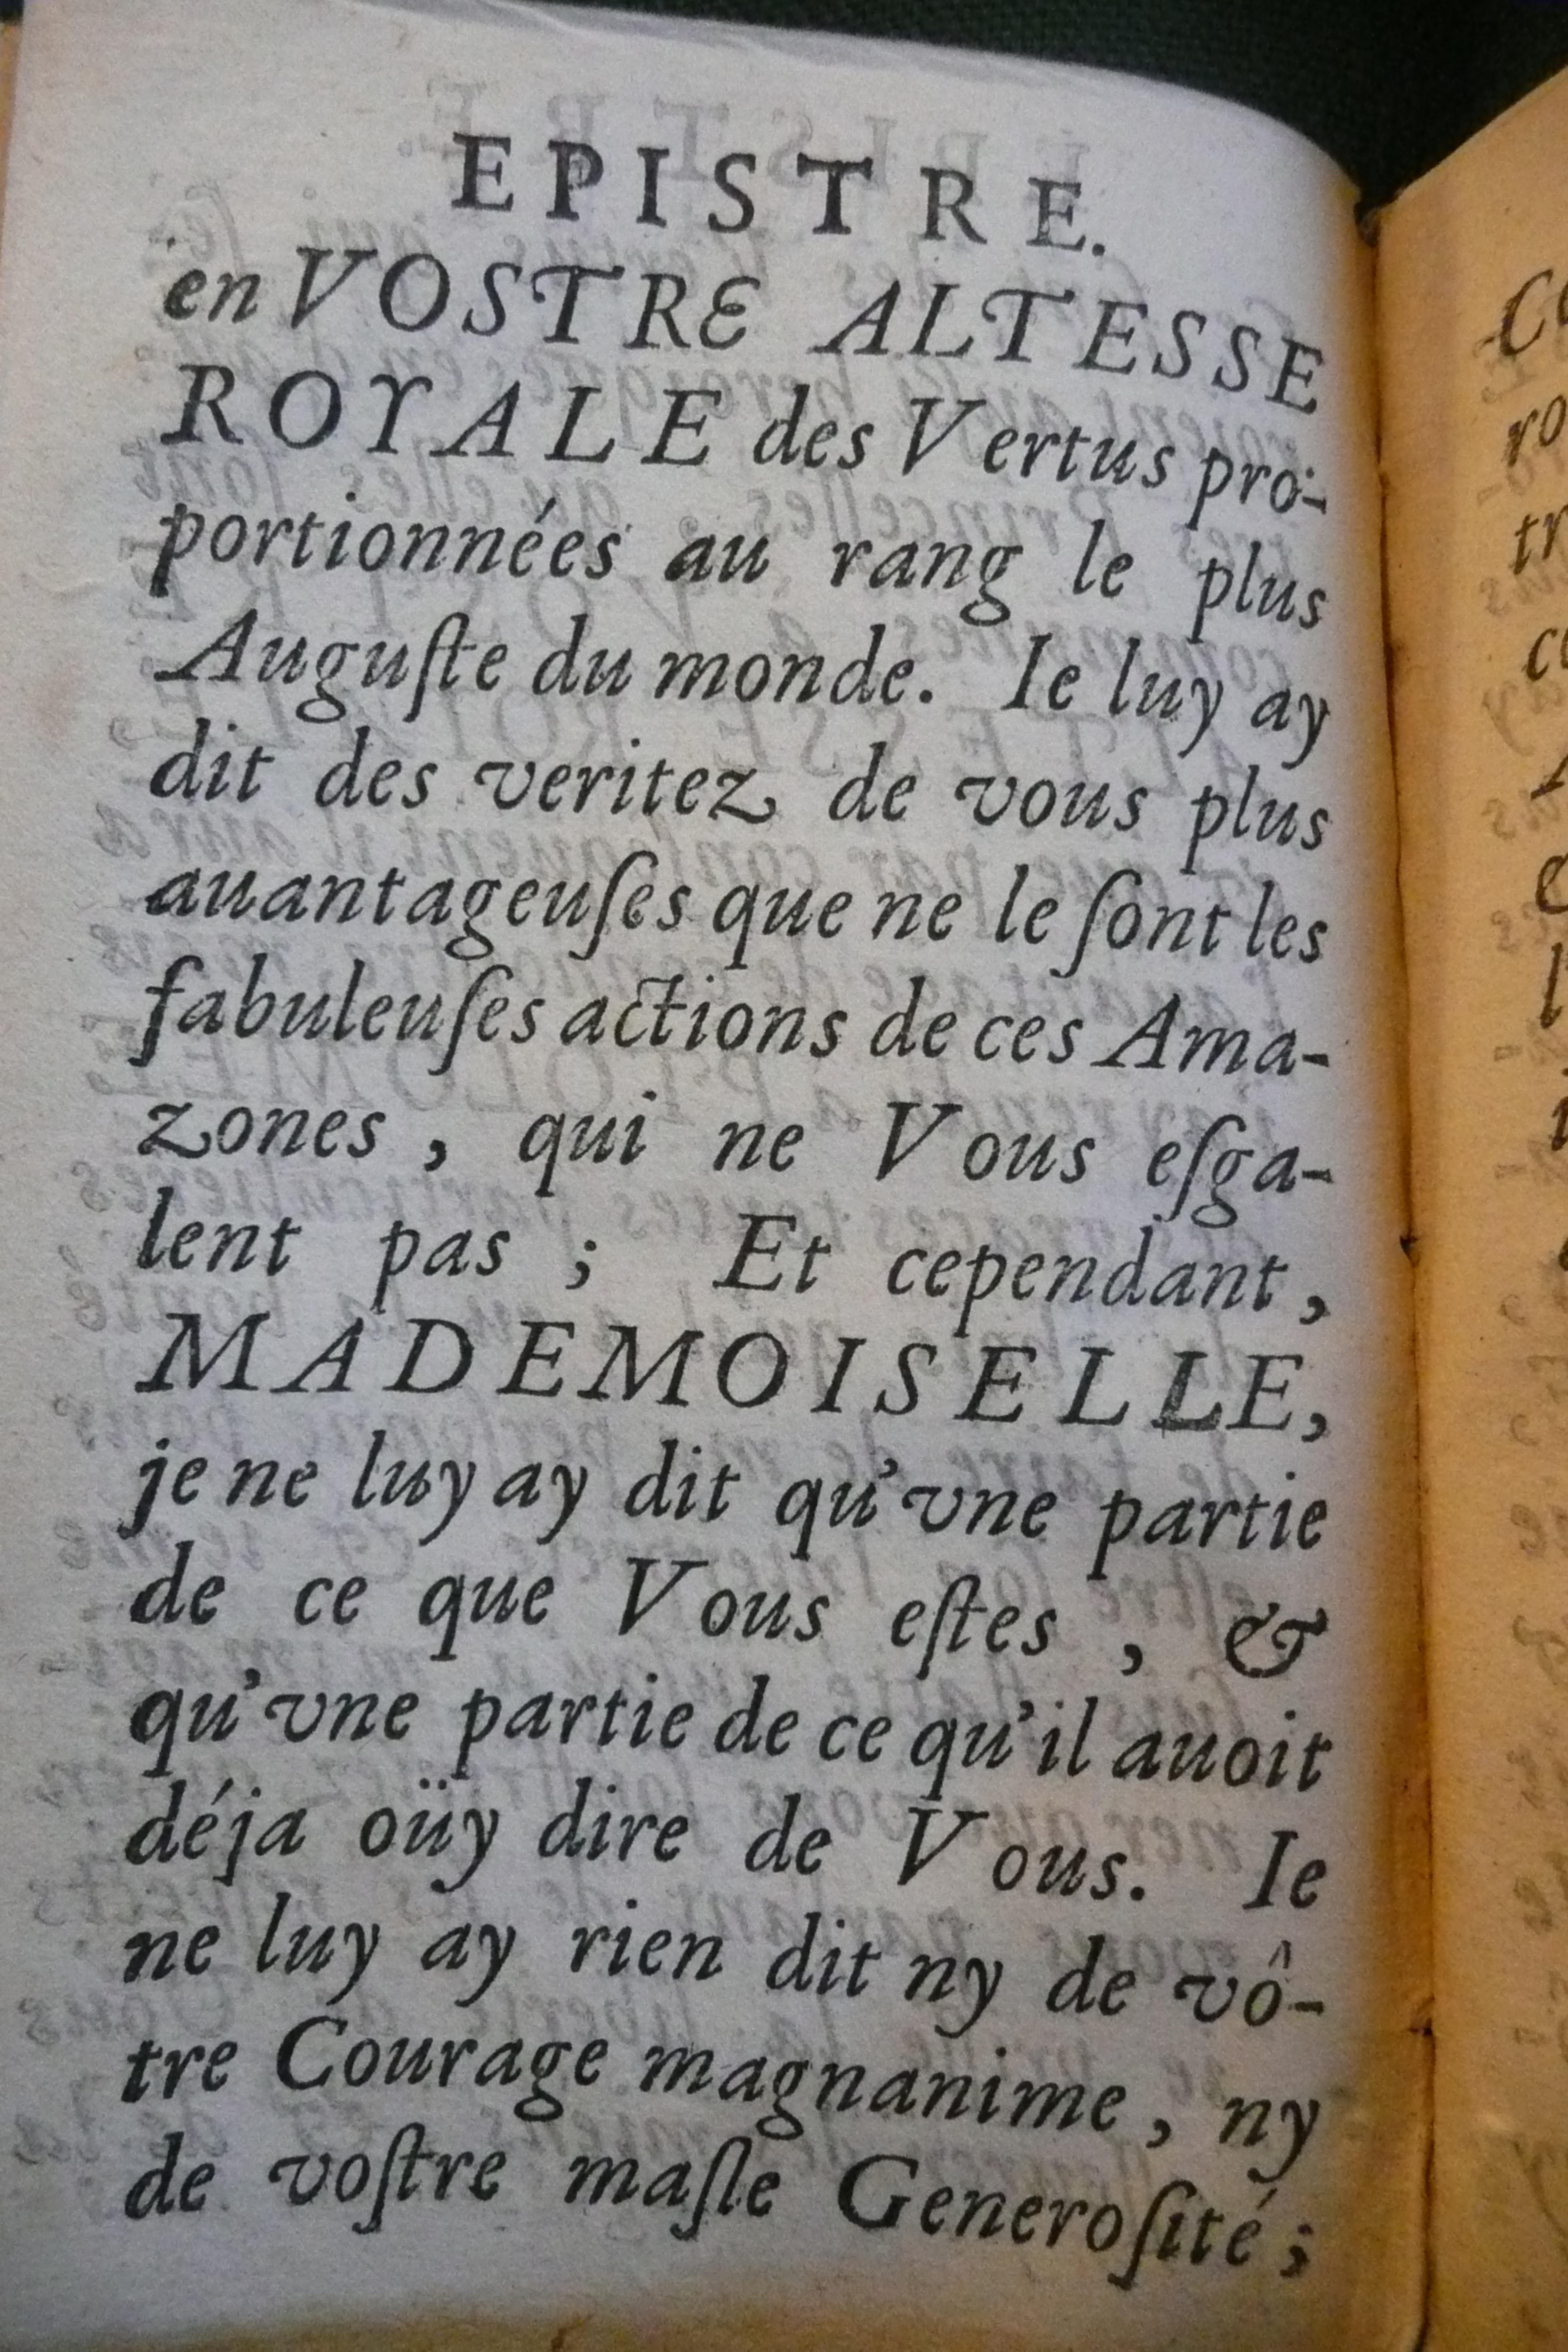 EPISTRE.
en VOSTRE ALTESSE
ROYALE des Vertus pro-
portionnées au rang le plus
Auguſte du monde. Ie luy ay
dit des veritez de vous plus
auantageuſes que ne le ſont les
fabuleuſes actions de ces Ama-
zones, qui ne Vous eſga-
lent pas ; Et cependant,
MADEMOISELLE,
je ne luy ay dit qu'vne partie
de ce que Vous eſtes, &
qu'vne partie de ce qu'il auoit
déja oüy dire de Vous. Ie
ne luy ay rien dit ny de vô-
tre Courage magnanime, ny
de voſtre maſle Generoſité ;